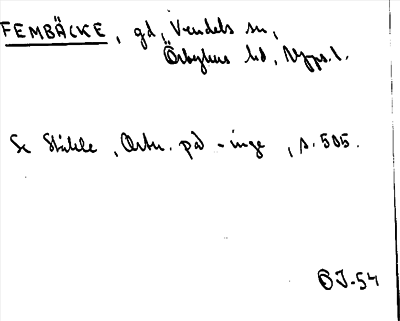 FEMBÄCKE, gd, Vendels sn,
Örbyhus hd, Upps. l.
Se Ståhle, Ortn. på -inge, s. 505.
OJ-54